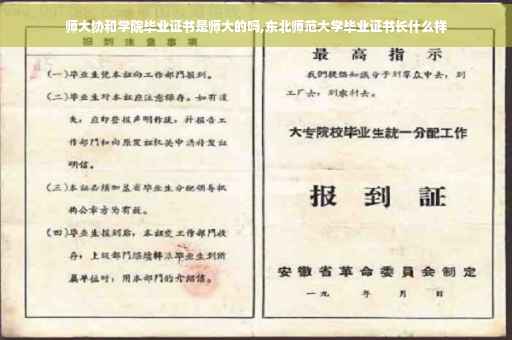 师大协和学院毕业证书是师大的吗,东北师范大学毕业证书长什么样
报到注意事项
(一)毕业生凭本证向工作部门报到。
(二)毕业生对本证应注意保存。如有遗
失,应即登报声明作废,并报告工
作部门和向原发证机关申请补发证
明信。
(三)本证必须加盖省毕业生分配领导机
构公章方为有效。
(四)毕业生报到后,本证交工作部门收
存;上级部门继续转派毕业生到所
属单位时,用本部门的介绍信。
最高指示
我们提倡知识分子到羣众中去,到
工厂去,到农村去。
大专院校毕业生统一分配工作
报到証
安徽省革命委員会制定
一九 年 月 日